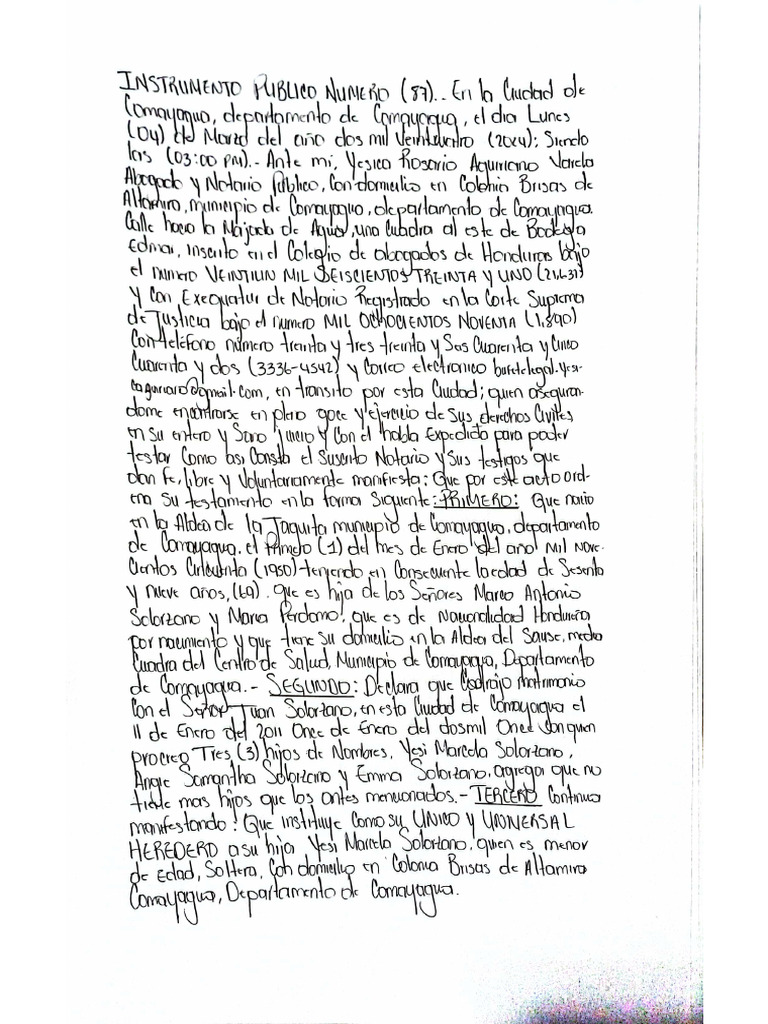 INSTRUMENTO PUBLICO NUMERO (87).. En la Ciudad de
Comayagua, departamento de Comayagua, el dia Lunes
(04) de Marzo del año dos mil Veinticuatro (2024); Siendo
las (03:00 PM).- Ante mi, Yesica Rosario Aguriano Varela
Abogado y Notario Publico, Con domicilio en Colonia Brisas de
Altamira, municipio de Comayagua, departamento de Comayagua.
Calle hacia la Majada de Agua, una Cuadra al este de Bodega
Edmar, inscrito en el Colegio de abogados de Honduras bajo
el numero VEINTIUN MIL SEISCIENTOS TREINTA Y UNO (21,631)
y Con Exequatur de Notario Registrado en la Corte Suprema
de Justicia bajo el numero MIL OCHOCIENTOS NOVENTA (1,890)
Con teléfono número treinta y tres treinta y Seis Cuarenta y Cinco
Cuarenta y dos (3336-4542) y Correo electronico bufetelegal.yesi-
caguriano@gmail.com, en transito por esta Ciudad; quien aseguran-
dome encontrarse en pleno goce y ejercicio de sus derechos Civiles,
en su entero y Sano juicio y Con el habla Expedido para poder
testar Como asi Consta el Suscrito Notario y Sus testigos que
dan fe, libre y Voluntariamente manifiesta: Que por este acto ord-
ena Su testamento en la forma Siguiente: PRIMERO: Que nacio
en la Aldea de la Jaguita municipio de Comayagua, departamento
de Comayagua. el Primero (1) del mes de Enero del año Mil Nove-
cientos Cincuenta (1950) teniendo en Consecuente la edad de Sesenta
y nueve años, (69). que es hija de los Señores Marco Antonio
Solorzano y Maria Perdomo, que es de Nacionalidad Hondureña
por nacimiento y que tiene su domicilio en la Aldea del Sause, media
Cuadra del Centro de Salud, Municipio de Comayagua, Departamento
de Comayagua.- SEGUNDO: Declara que Contrajo Matrimonio
Con el Señor Juan Solorzano, en esta Ciudad de Comayagua el
11 de Enero del 2011 Once de Enero del dosmil Once Con quien
procreo Tres (3) hijos de Nombres, Yesi Marcela Solorzano,
Angie Samantha Solorzano y Emma Solorzano, agrega que no
tiene mas hijos que los antes mencionados.- TERCERO Continua
manifestando: Que instituye Como su UNICO y UNIVERSAL
HEREDERO a su hija Yesi Marcela Solorzano, quien es menor
de Edad, Soltera, Con domicilio en Colonia Brisas de Altamira
Comayagua, Departamento de Comayagua.